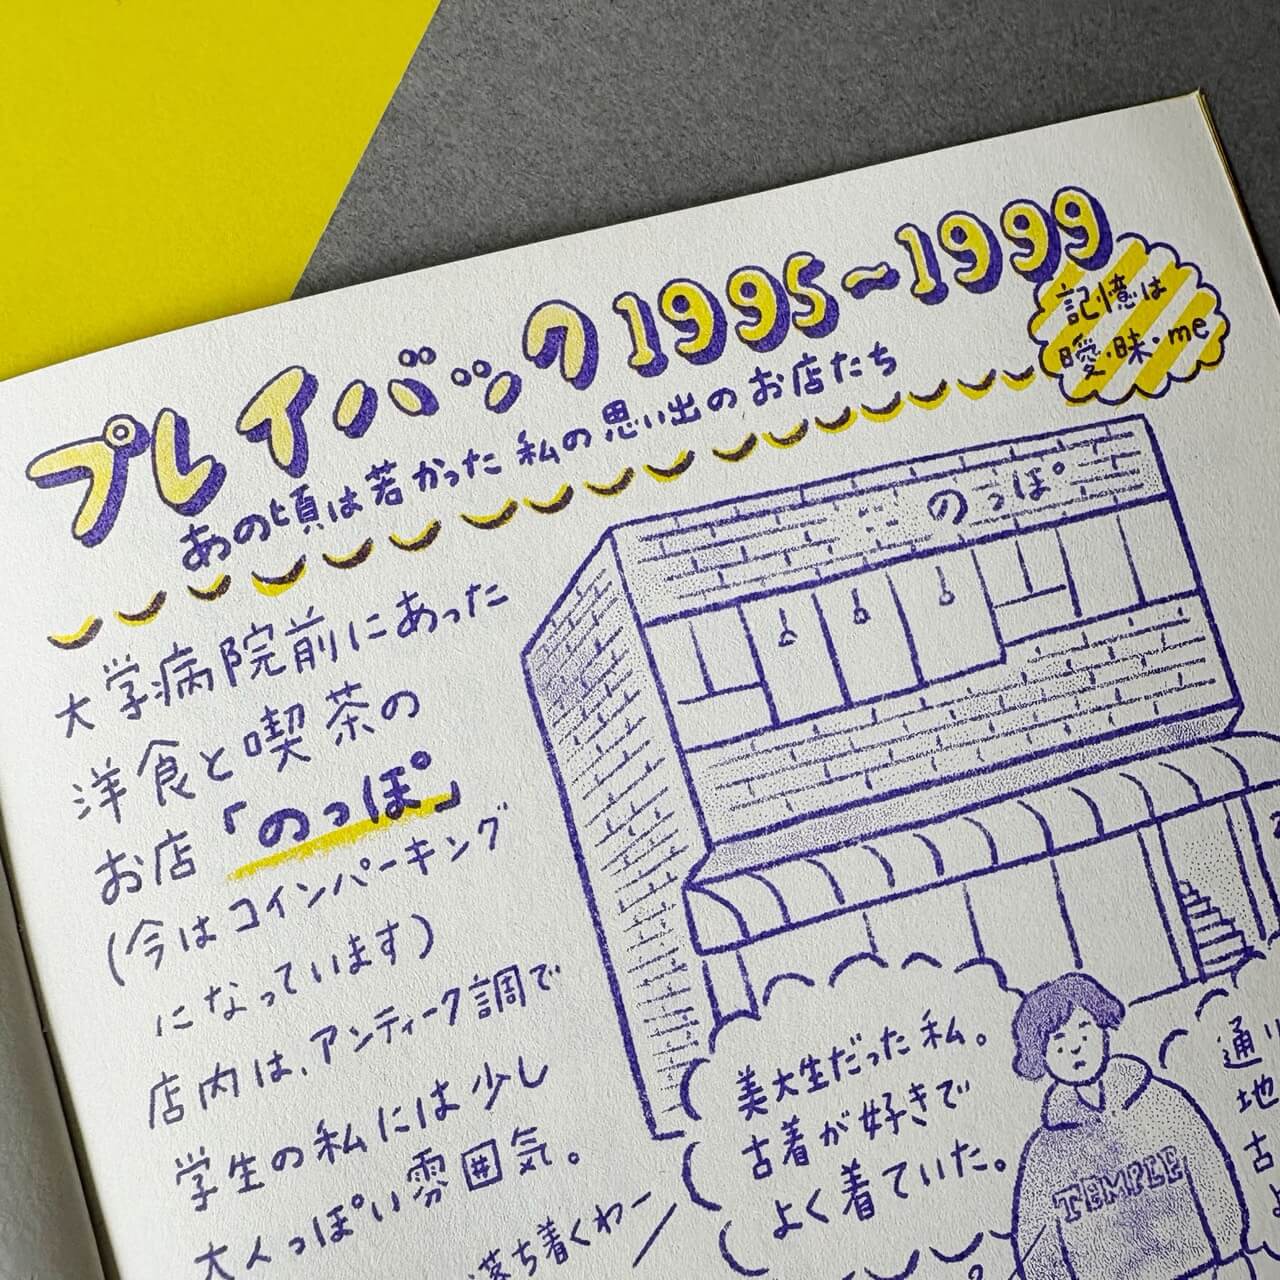 プレイバック1995~1999
あの頃は若かった私の思い出のお店たち
記憶は
曖・昧・me
のっぽ
大学病院前にあった
洋食と喫茶の
お店「のっぽ」
(今はコインパーキング
になっています)
店内は、アンティーク調で
学生の私には少し
大人っぽい雰囲気。
落ち着くわー
美大生だった私。
古着が好きで
よく着ていた。
TEMPLE
通り
地
古